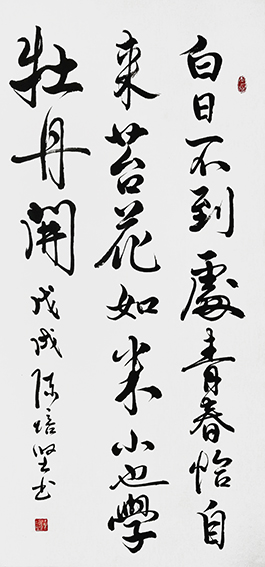 白日不到處青春怡自
來苔花如米小也學
牡丹開
戊戌 陈培坚书